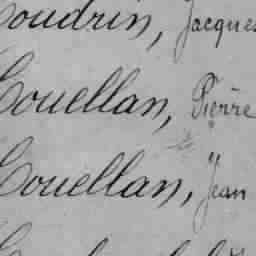 Coudrin, Jacques
Couellan, Pierre
Couellan, Jean